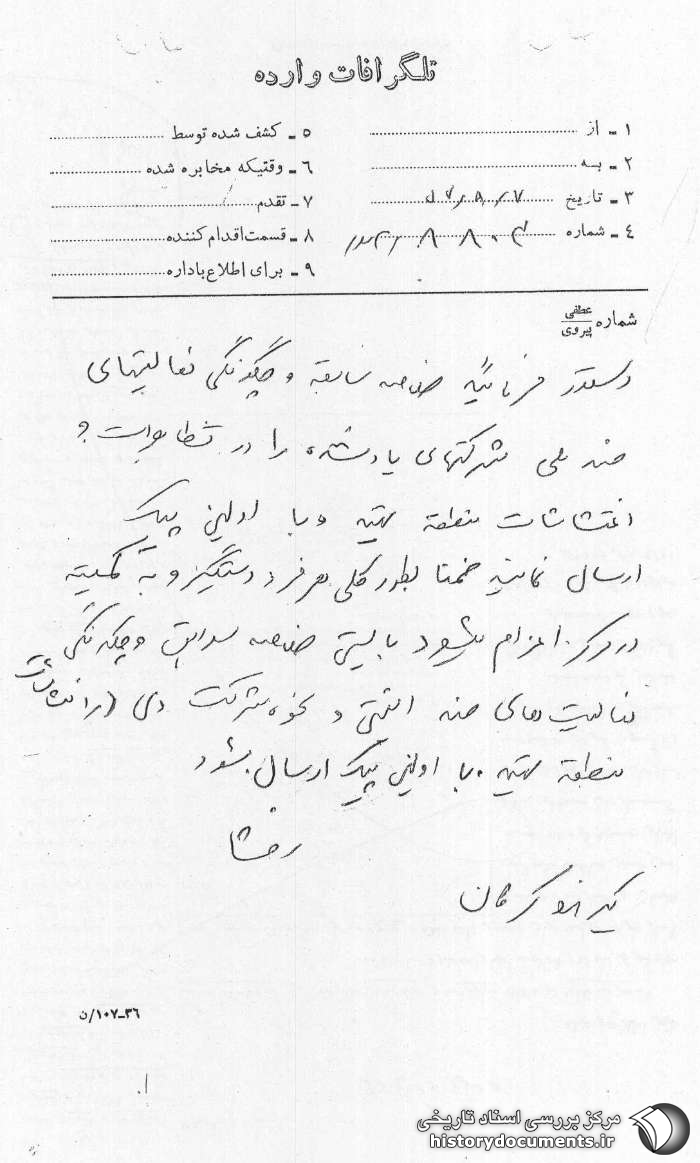 تلگرافات وارده
۱ - از
۲ - به
۳ - تاریخ
۴ - شماره
۵ - کشف شده توسط
۶ - وقتیکه مخابره شده
۷ - تقدم
۸ - قسمت اقدام کننده
۹ - برای اطلاع باداره
شماره عطفی پیروی
دستور فرمائید خلاصه سابقه و چگونگی فعالیتهای
ضد ملی را در تظاهرات و
اغتشاشات منطقه تهیه و با اولین پیک
ارسال نمایند ضمنا بطور کلی هر فرد دستگیر و به کمیته
مرکز اعزام میشود بایستی خلاصه سوابق و چگونگی
فعالیت های ضد امنیتی و نحوه شرکت وی در اغتشاشات
منطقه تهیه و با اولین پیک ارسال شود
۳۶-۱۰۷/ن
مرکز بررسی اسناد تاریخی
historydocuments.ir